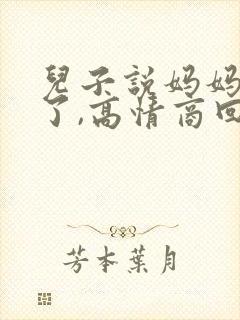 兒子説妈妈
了,高情商回
芳本葉月